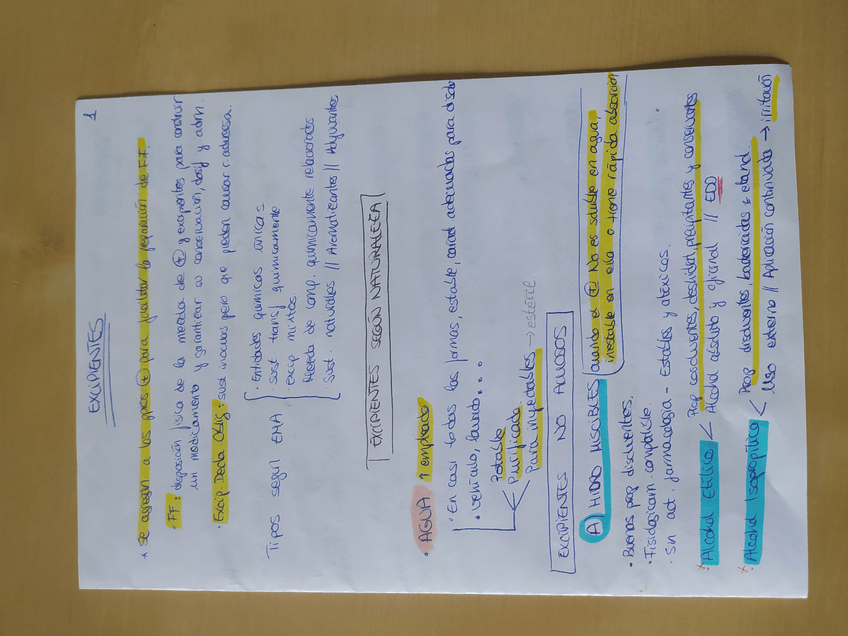 1
EXCIPIENTES
* Se agregan a los ppios ⊕ para facilitar la preparación de F.F.
· FF: disposición física de la mezcla de ⊕ y excipientes para construir
un medicamento y garantizar su conservación, dosif y adm.
· Excip Decla Oblig: sust inocuas pero que pueden causar r. adversa.
Tipos según EMA
· Entidades químicas únicas
sust transf químicamente
Excip mixtos
Mezcla de comp. químicamente relacionados
Sust. naturales // Aromatizantes // Adyuvantes
EXCIPIENTES SEGÚN NATURALEZA
· AGUA ↑ empleado
· En casi todas las formas, estable, caract adecuadas para disolv
· Vehículo, lavado...
Potable
Purificada
Para inyectables → estéril
EXCIPIENTES NO ACUOSOS
A) HIDRO MISCIBLES cuando el ⊕ No es soluble en agua,
inestable en ella o tiene rápida absorción
· Buenas prop disolventes.
· Fisiológicam. compatible.
· Sin act. farmacológica - Estables y atóxicos.
* Alcohol Etílico < Prop cosolventes, desinfect, precipitantes y conservantes
Alcohol absoluto y glicerol // EDO
* Alcohol Isopropílico < Prop disolventes, bactericidas ≠ etanol
Uso externo // Aplicación continuada → irritación